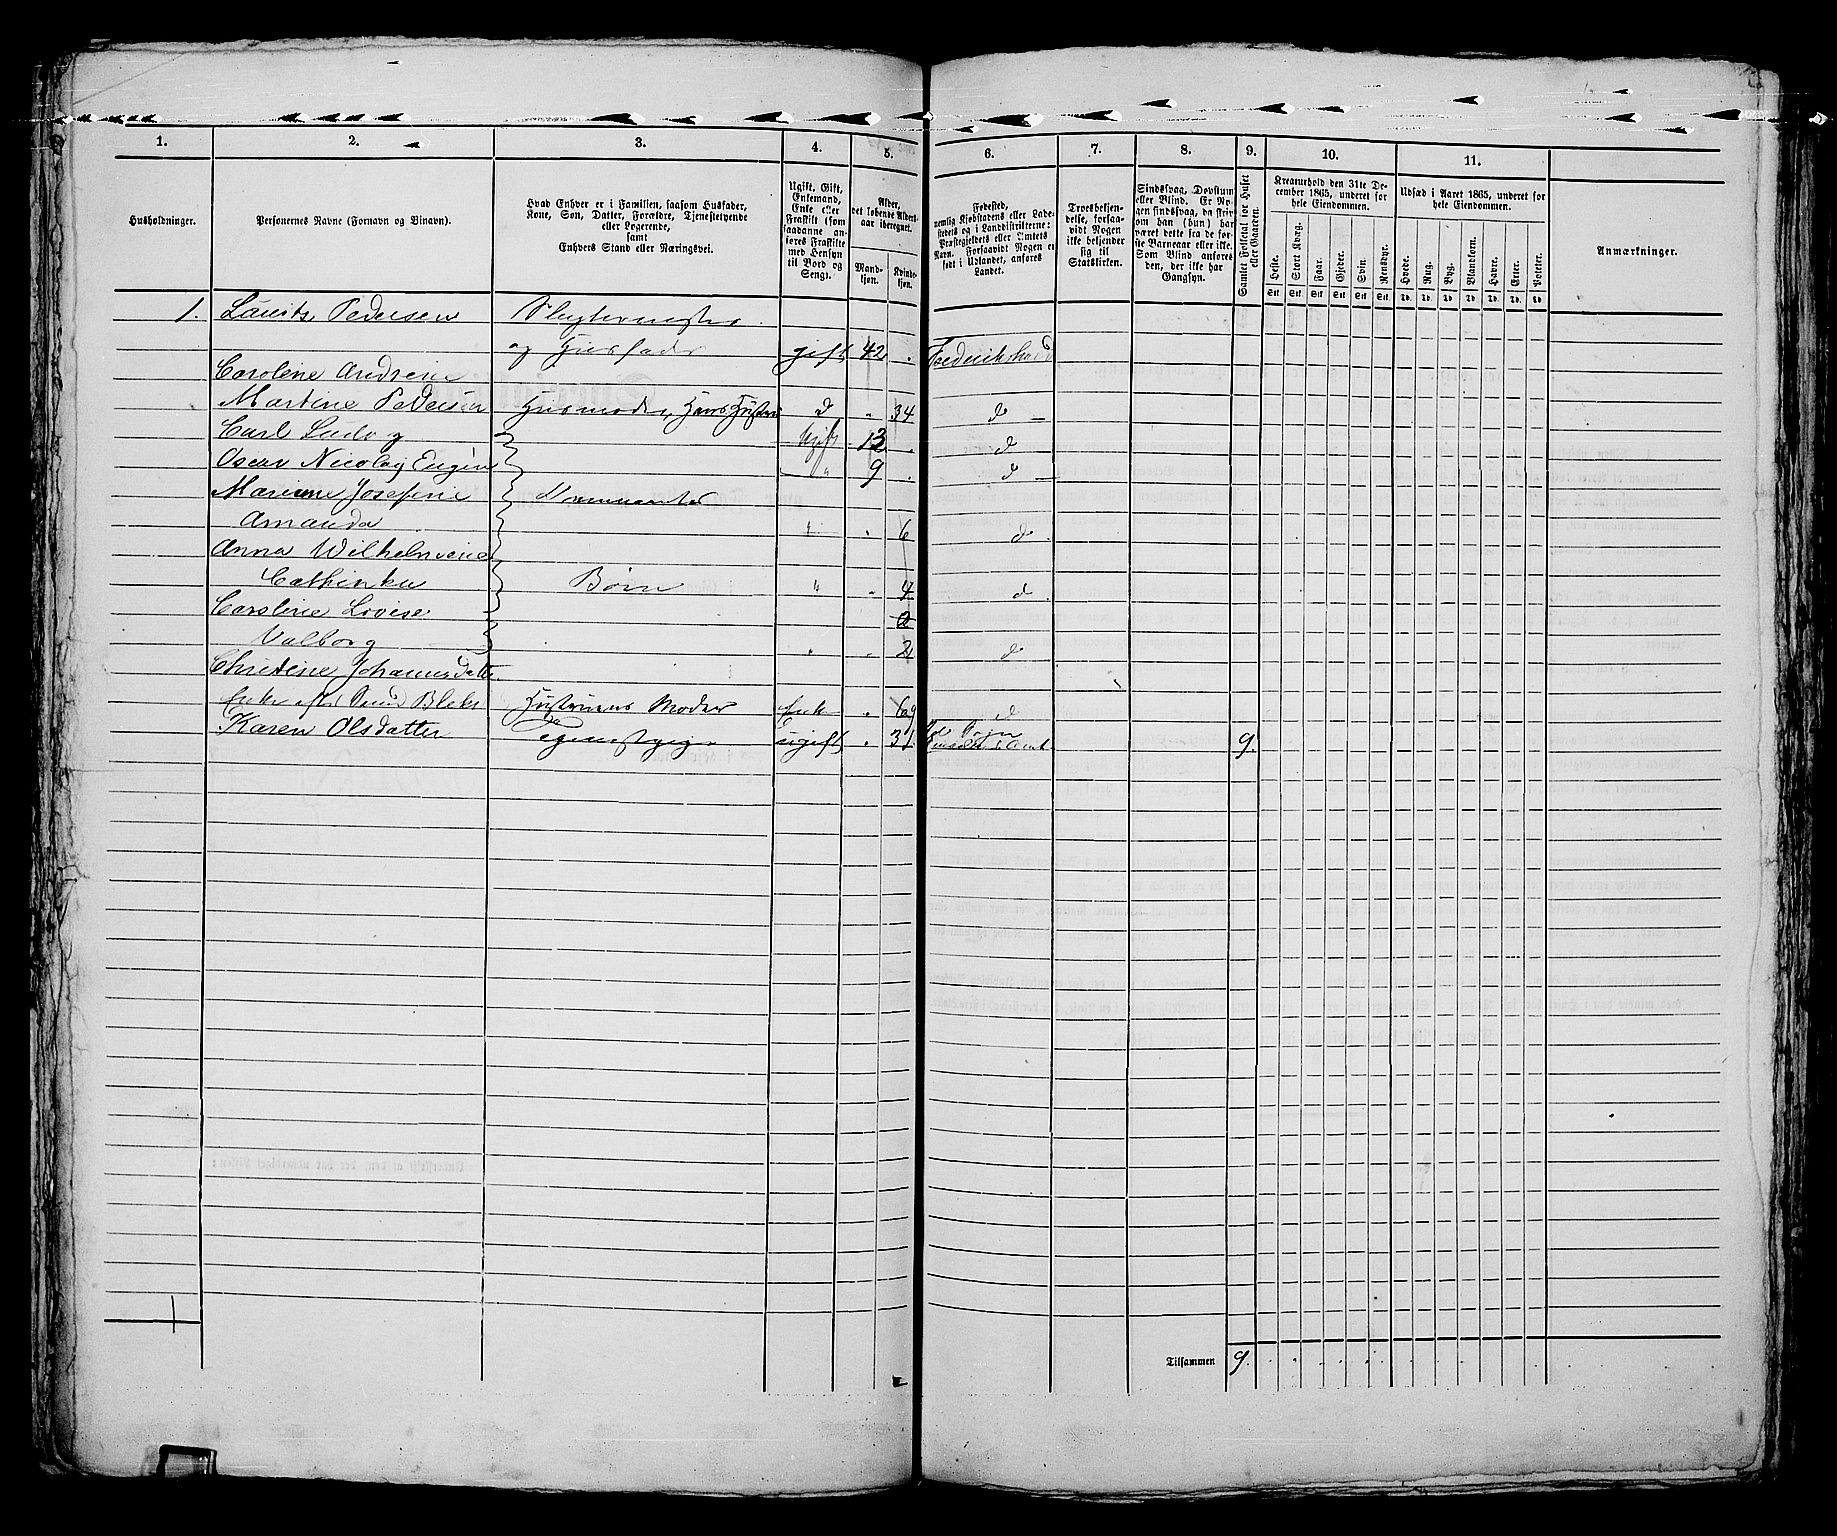 1. 2. 3. 4. 5. 6. 7. 8. 9. 10. 11.
Husholdninger.
Personernes Navne (Fornavn og Binavn).
Hvad Enhver er i Familien, saasom Husfader,
Kone, Søn, Datter, Forældre, Tjenestetyende
eller Logerende,
samt
Enhvers Stand eller Næringsvei.
Ugift, Gift,
Enkemand,
Enke eller
Fraskilt (som
saadanne an-
føres Fraskilte
med Hensyn
til Bord og
Seng).
Alder,
det løbende Alders-
aar iberegnet.
Mand-
kjøn.
Kvinde-
kjøn.
Fødested,
nemlig Kjøbstadens eller Lade-
stedets og i Landdistrikterne:
Præstegjeldets eller Amtets
Navn. Forsaavidt Nogen er
født i Udlandet, anføres
Landet.
Troesbekjen-
delse, forsaa-
vidt Nogen
ikke bekjender
sig til
Statskirken.
Sindssvag, Døvstum
eller Blind. Er No-
gen sindssvag, da skriv
om han (hun) har
været dette fra de før-
ste Barneaar eller ikke.
Som Blind anføres
den, der ikke har
Gangsyn.
Samlet Folketal for Huset
eller Gaarden.
Kreaturhold den 31te De-
cember 1865, underet for
hele Eiendommen.
Heste. Stort Kvæg. Faar. Gjeder. Svin. Rensdyr.
Stk. Stk. Stk. Stk. Stk. Stk.
Udsæd i Aaret 1865, underet for
hele Eiendommen.
Hvede. Rug. Byg. Blandkorn. Havre. Erter. Poteter.
Td. Td. Td. Td. Td. Td. Td.
Anmærkninger.
1. Lauits Pedersen Slagtermester
og Huusfader gift 42 . Frederikshald
Caroline Andrene
Martine Pedersen Husmoder, Hans Hustru d " 34 d
Carl Ludvig Ugift 13 . d
Oscar Nicolay Eugen " 9 . d
Marienne Josefine
Amanda " " 6 d
Anna Wilhelmine
Cathinka Børn " " 4 d
Caroline Lovise 2
Valborg " " 2 d
Christine Johannesdatter
Enke efter Blek Hustruens Moder Enke " 69 d
Karen Olsdatter Tjenestepige ugift " 31 Amt 9.
1
Tilsammen 9.